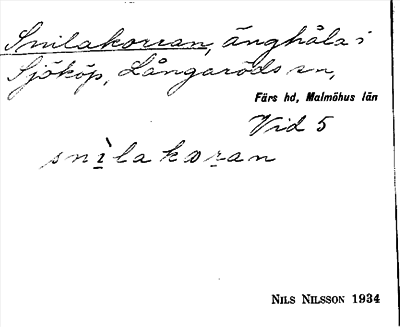 Snilakorran, änghåla i
Sjököp, Långaröds sn,
Färs hd, Malmöhus län
Vid 5
snìlakoran
NILS NILSSON 1934